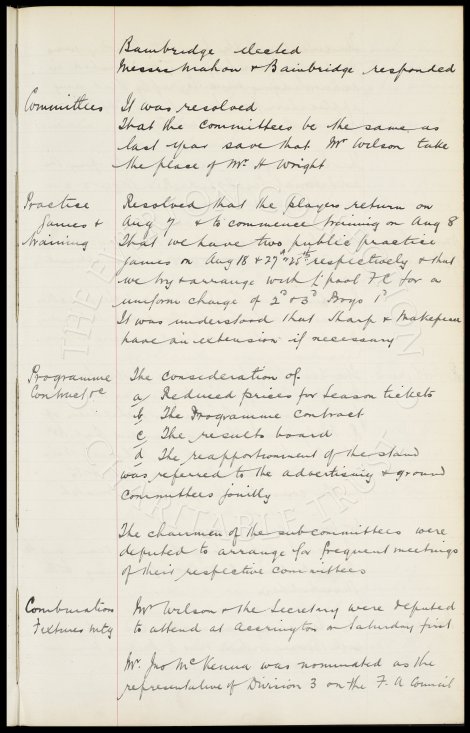 Bainbridge elected
Messrs Mahon & Bainbridge responded
Committees It was resolved
That the committees be the same as
last year save that Mr Wilson take
the place of Mr H Wright
Practice Resolved that the players return on
games & Aug 7 & to commence training on Aug 8
training That we have two public practice
games on Aug 18 & respectively & that
we try & arrange with L'pool F C for a
uniform charge of 2d or 3d Boys 1d
It was understood that Sharp & Makepeace
have an extension if necessary
Programme The consideration of
Contract &c a/ Reduced prices for season tickets
b/ The Programme contract
c/ The results board
d/ The reapportionment of the stand
was referred to the advertising & ground
committees jointly
The chairmen of the subcommittees were
deputed to arrange for frequent meetings
of their respective committees
Combination Mr Wilson & the Secretary were deputed
Fixtures mtg to attend at Accrington on Saturday first
Mr. Jno McKenna was nominated as the
representative of Division 3 on the F. A Council
THE EVERTON COLLECTION
CHARITABLE TRUST